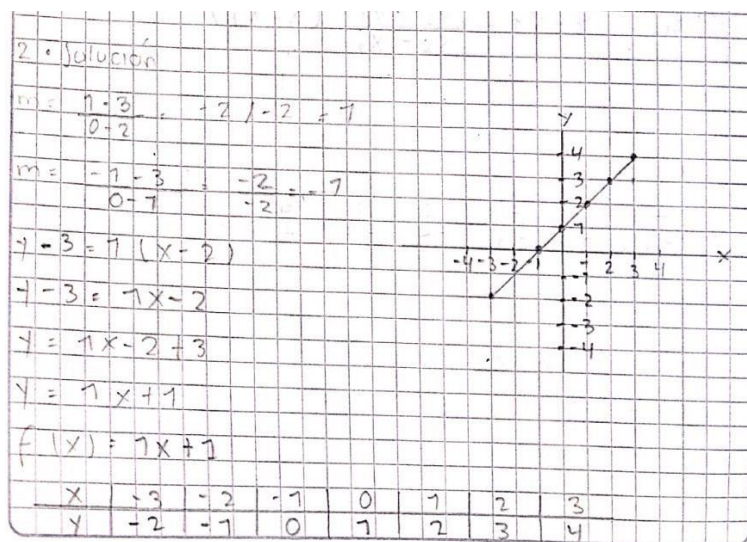 2. Solución
m = 1-3/0-2 = -2/-2 = 1
m = -1-3/0-1 = -2/-2 = -1
y-3=1(x-2)
y-3=1x-2
y=1x-2+3
y=1x+1
f(x)=1x+1
x -3 -2 -1 0 1 2 3
y -2 -1 0 1 2 3 4
y
4
3
2
1
-4 -3 -2 -1 1 2 3 4 x
-1
-2
-3
-4